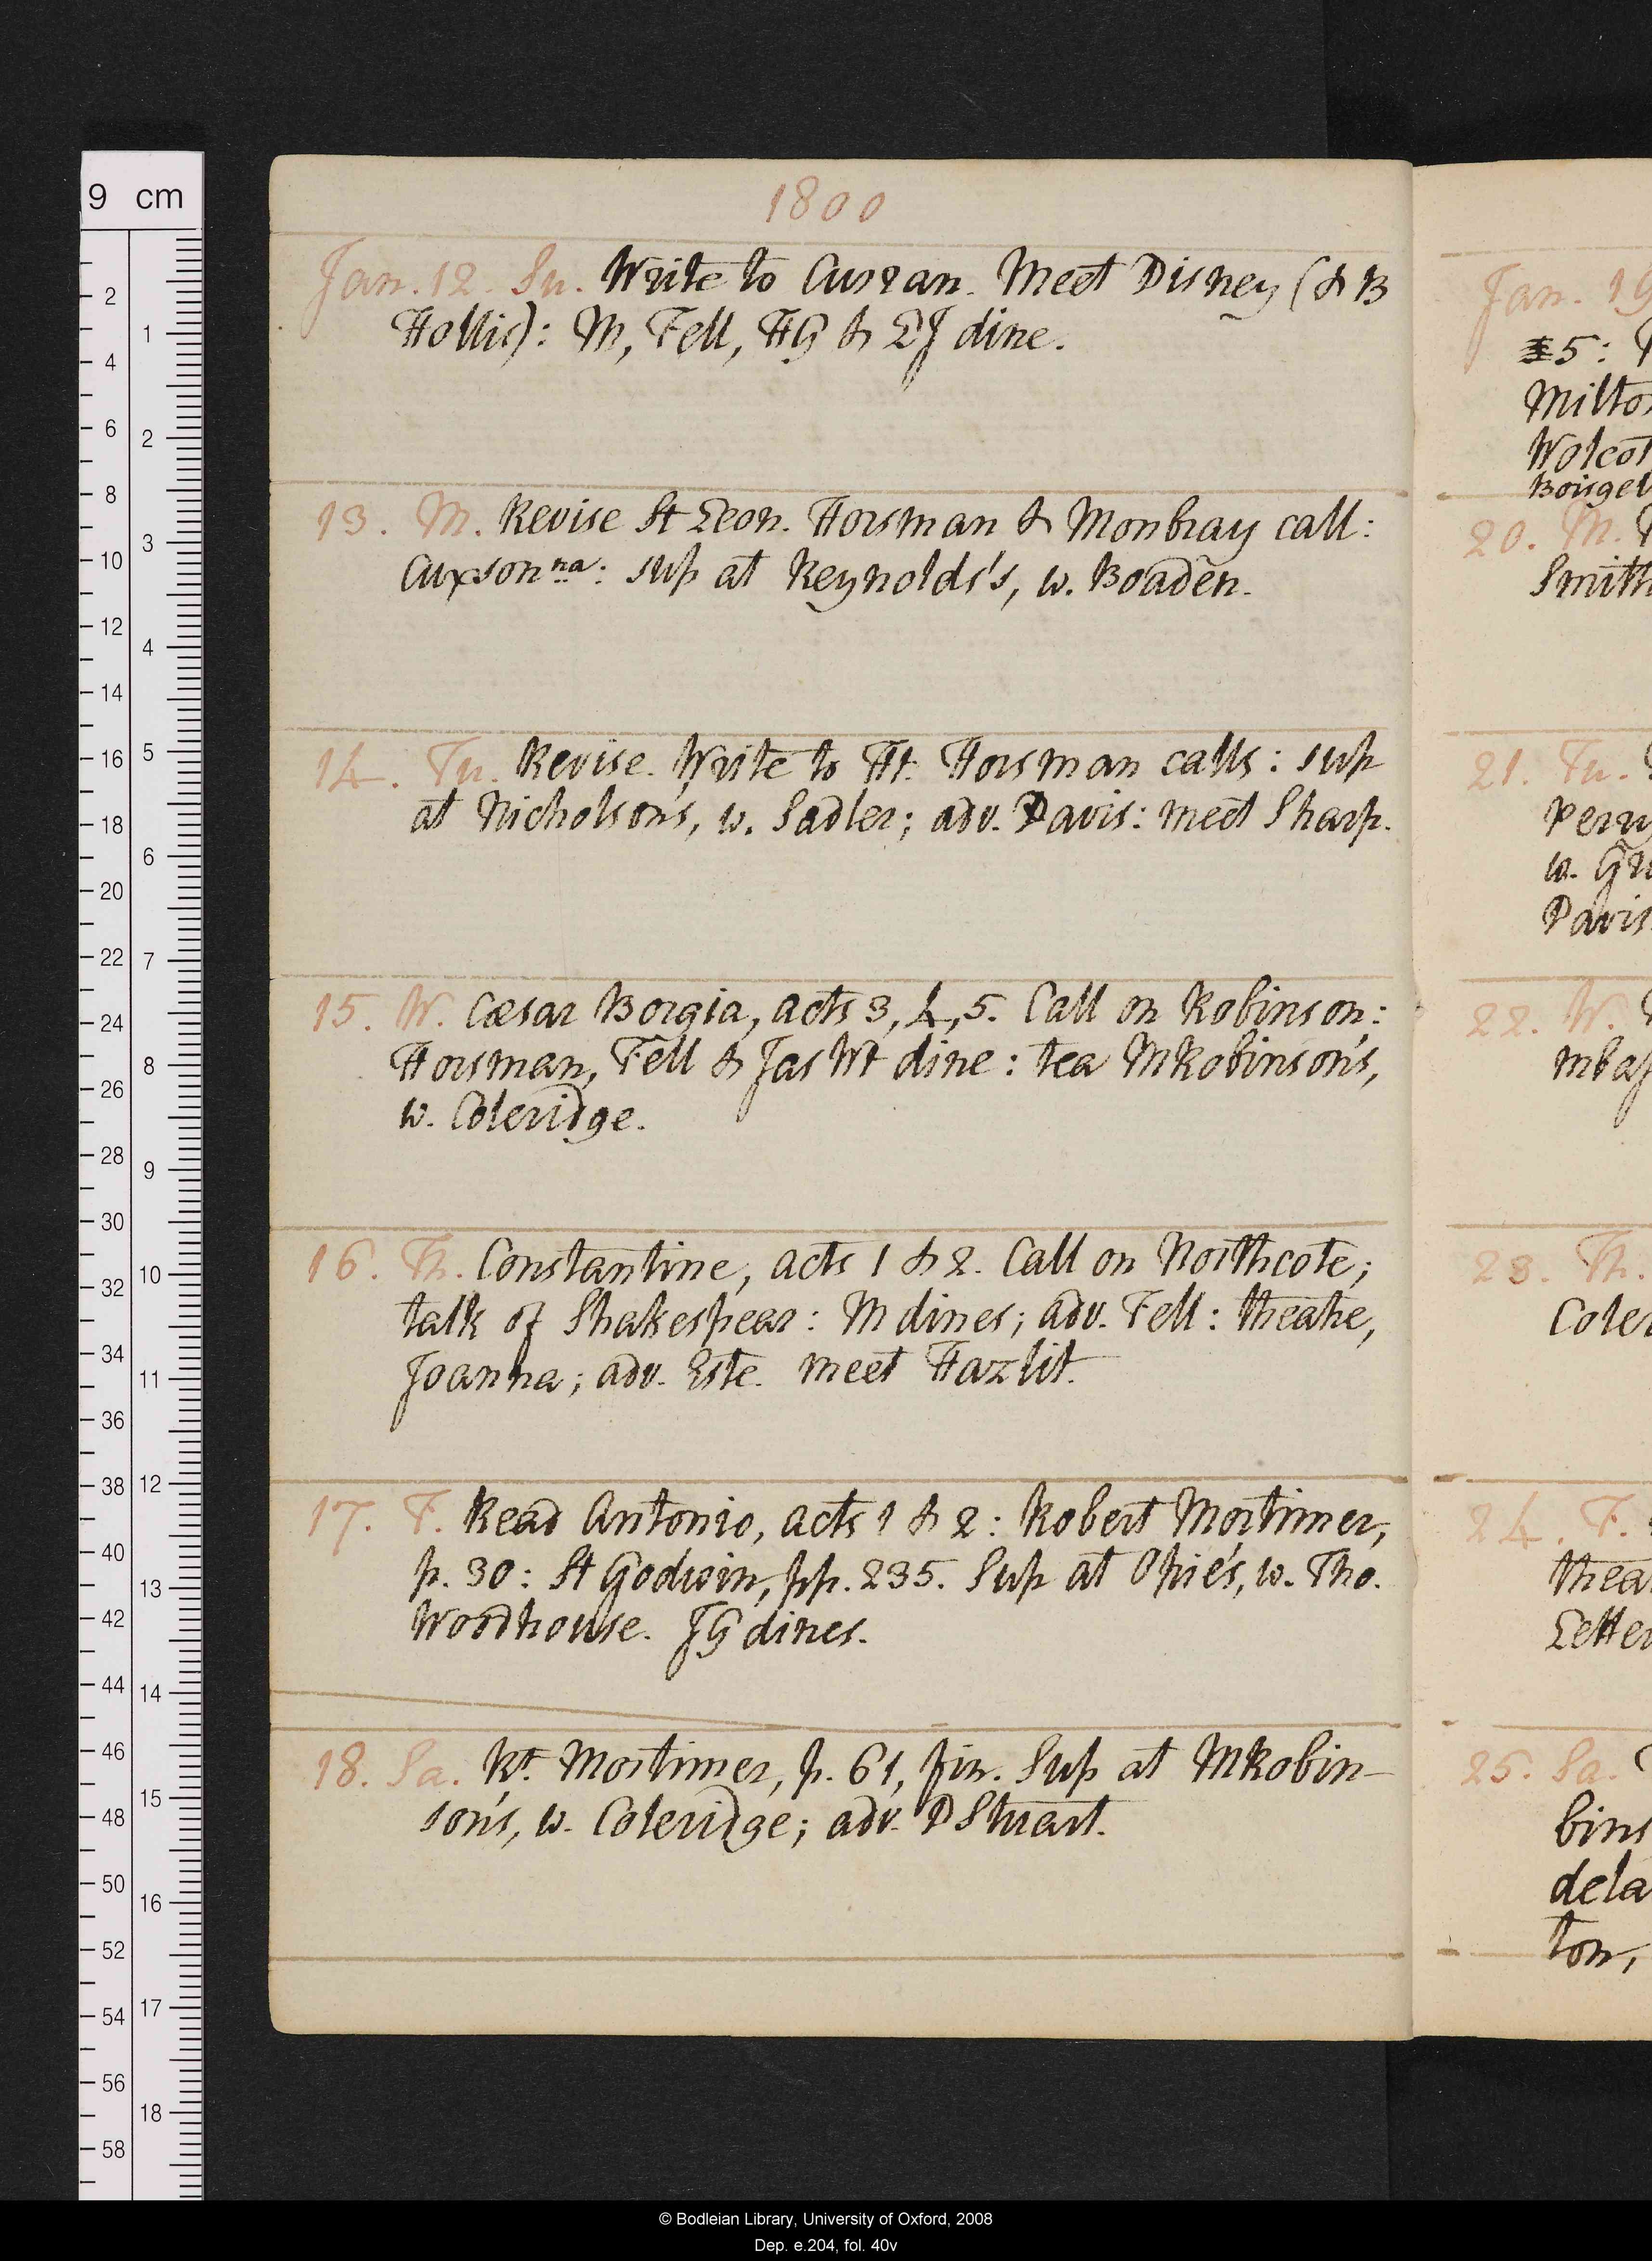 1800
Jan. 12. Su. Write to Curran. Meet Disney (& B
Hollis): M, Fell, HG & LJ dine.
13. M. Revise St Leon. Horsman & Monbray call:
Cuxson na: sup at Reynolds's, w. Boaden.
14. Tu. Revise. Write to Ht. Horsman calls: sup
at Nicholson's, w. Sadler; adv. Davis: meet Sharp.
15. W. Cæsar Borgia, acts 3, 4, 5. Call on Robinson:
Horsman, Fell & Jas Wt dine: tea MRobinson's,
w. Coleridge.
16. Th. Constantine, acts 1 & 2. Call on Northcote;
talk of Shakespear: M dines; adv. Fell: theatre,
Joanna; adv. Este. meet Hazlit.
17. F. Read Antonio, acts 1 & 2: Robert Mortimer,
p. 30: St Godwin, pp. 235. Sup at Opie's, w. Tho.
Woodhouse. JG dines.
18. Sa. Rt. Mortimer, p. 61, fin. Sup at MRobin-
son's, w. Coleridge; adv. D Stuart.
Jan. 19
5:
Milto
Wolcot
Boisgel
20. M.
Smith
21. Tu.
Perry
w. Gr
Davis
22. W.
23. Th.
Coler
24. F.
theat
Letter
25. Sa.
bins
dela
ton,
9 cm
2
4
6
8
10
12
14
16
18
20
22
24
26
28
30
32
34
36
38
40
42
44
46
48
50
52
54
56
58
1
2
3
4
5
6
7
8
9
10
11
12
13
14
15
16
17
18
© Bodleian Library, University of Oxford, 2008
Dep. e.204, fol. 40v